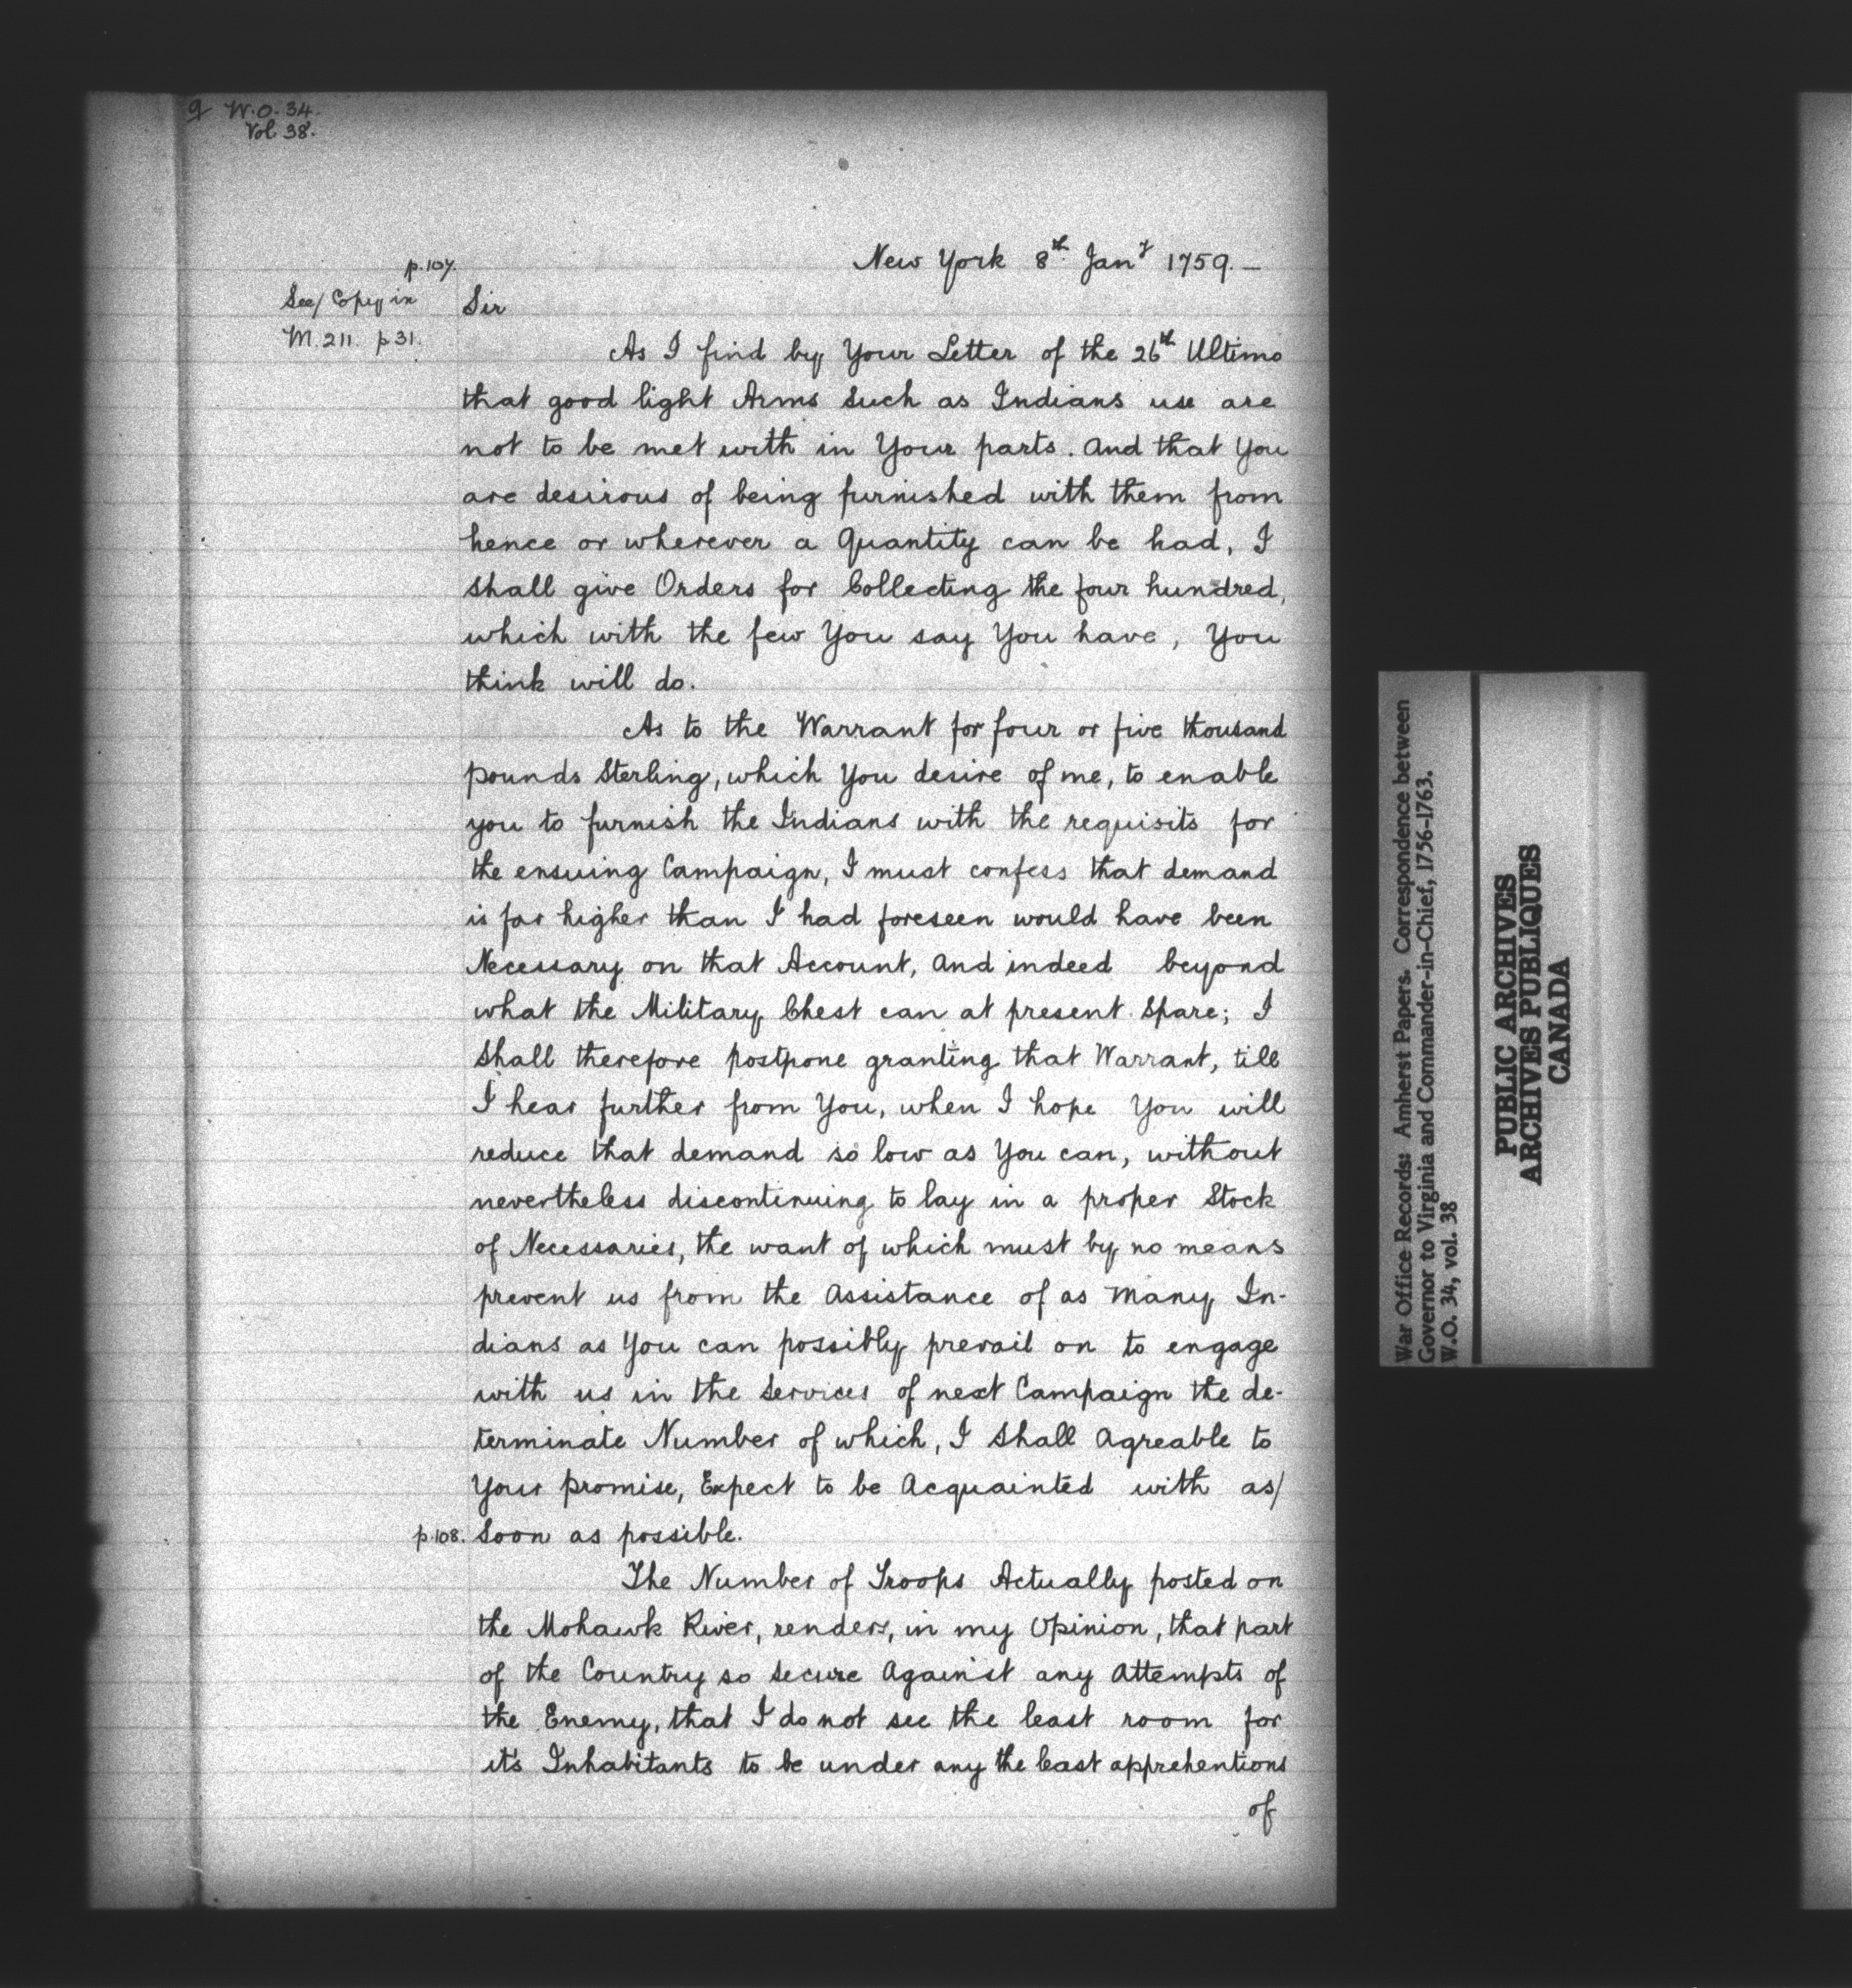 9 W.O. 34.
Vol. 38.
New York 8th Jany 1759. —
p. 107.
See/ Copy in
M. 211. p 31.
Sir
As I find by Your Letter of the 26th Ultimo
that good light Arms Such as Indians use are
not to be met with in Your parts. And that You
are desirous of being furnished with them from
hence or wherever a Quantity can be had, I
shall give Orders for Collecting the four hundred,
which with the few You say You have, You
think will do.
As to the Warrant for four or five thousand
pounds Sterling, which You desire of me, to enable
you to furnish the Indians with the requisits for
the ensuing Campaign, I must confess that demand
is far higher than I had foreseen would have been
Necessary on that Account, and indeed beyond
what the Military Chest can at present Spare; I
Shall therefore postpone granting that Warrant, till
I hear further from You, when I hope You will
reduce that demand so low as You can, without
nevertheless discontinuing to lay in a proper Stock
of Necessaries, the want of which must by no means
prevent us from the Assistance of as many In-
dians as You can possibly prevail on to engage
with us in the Services of next Campaign the de-
terminate Number of which, I Shall Agreable to
Your promise, Expect to be Acquainted with as/
p. 108. Soon as possible.
The Number of Troops Actually posted on
the Mohawk River, renders, in my Opinion, that part
of the Country so Secure Against any Attempts of
the Enemy, that I do not see the least room for
it's Inhabitants to be under any the least apprehentions
of
War Office Records: Amherst Papers. Correspondence between
Governor to Virginia and Commander-in-Chief, 1756-1763.
W.O. 34, vol. 38
PUBLIC ARCHIVES
ARCHIVES PUBLIQUES
CANADA